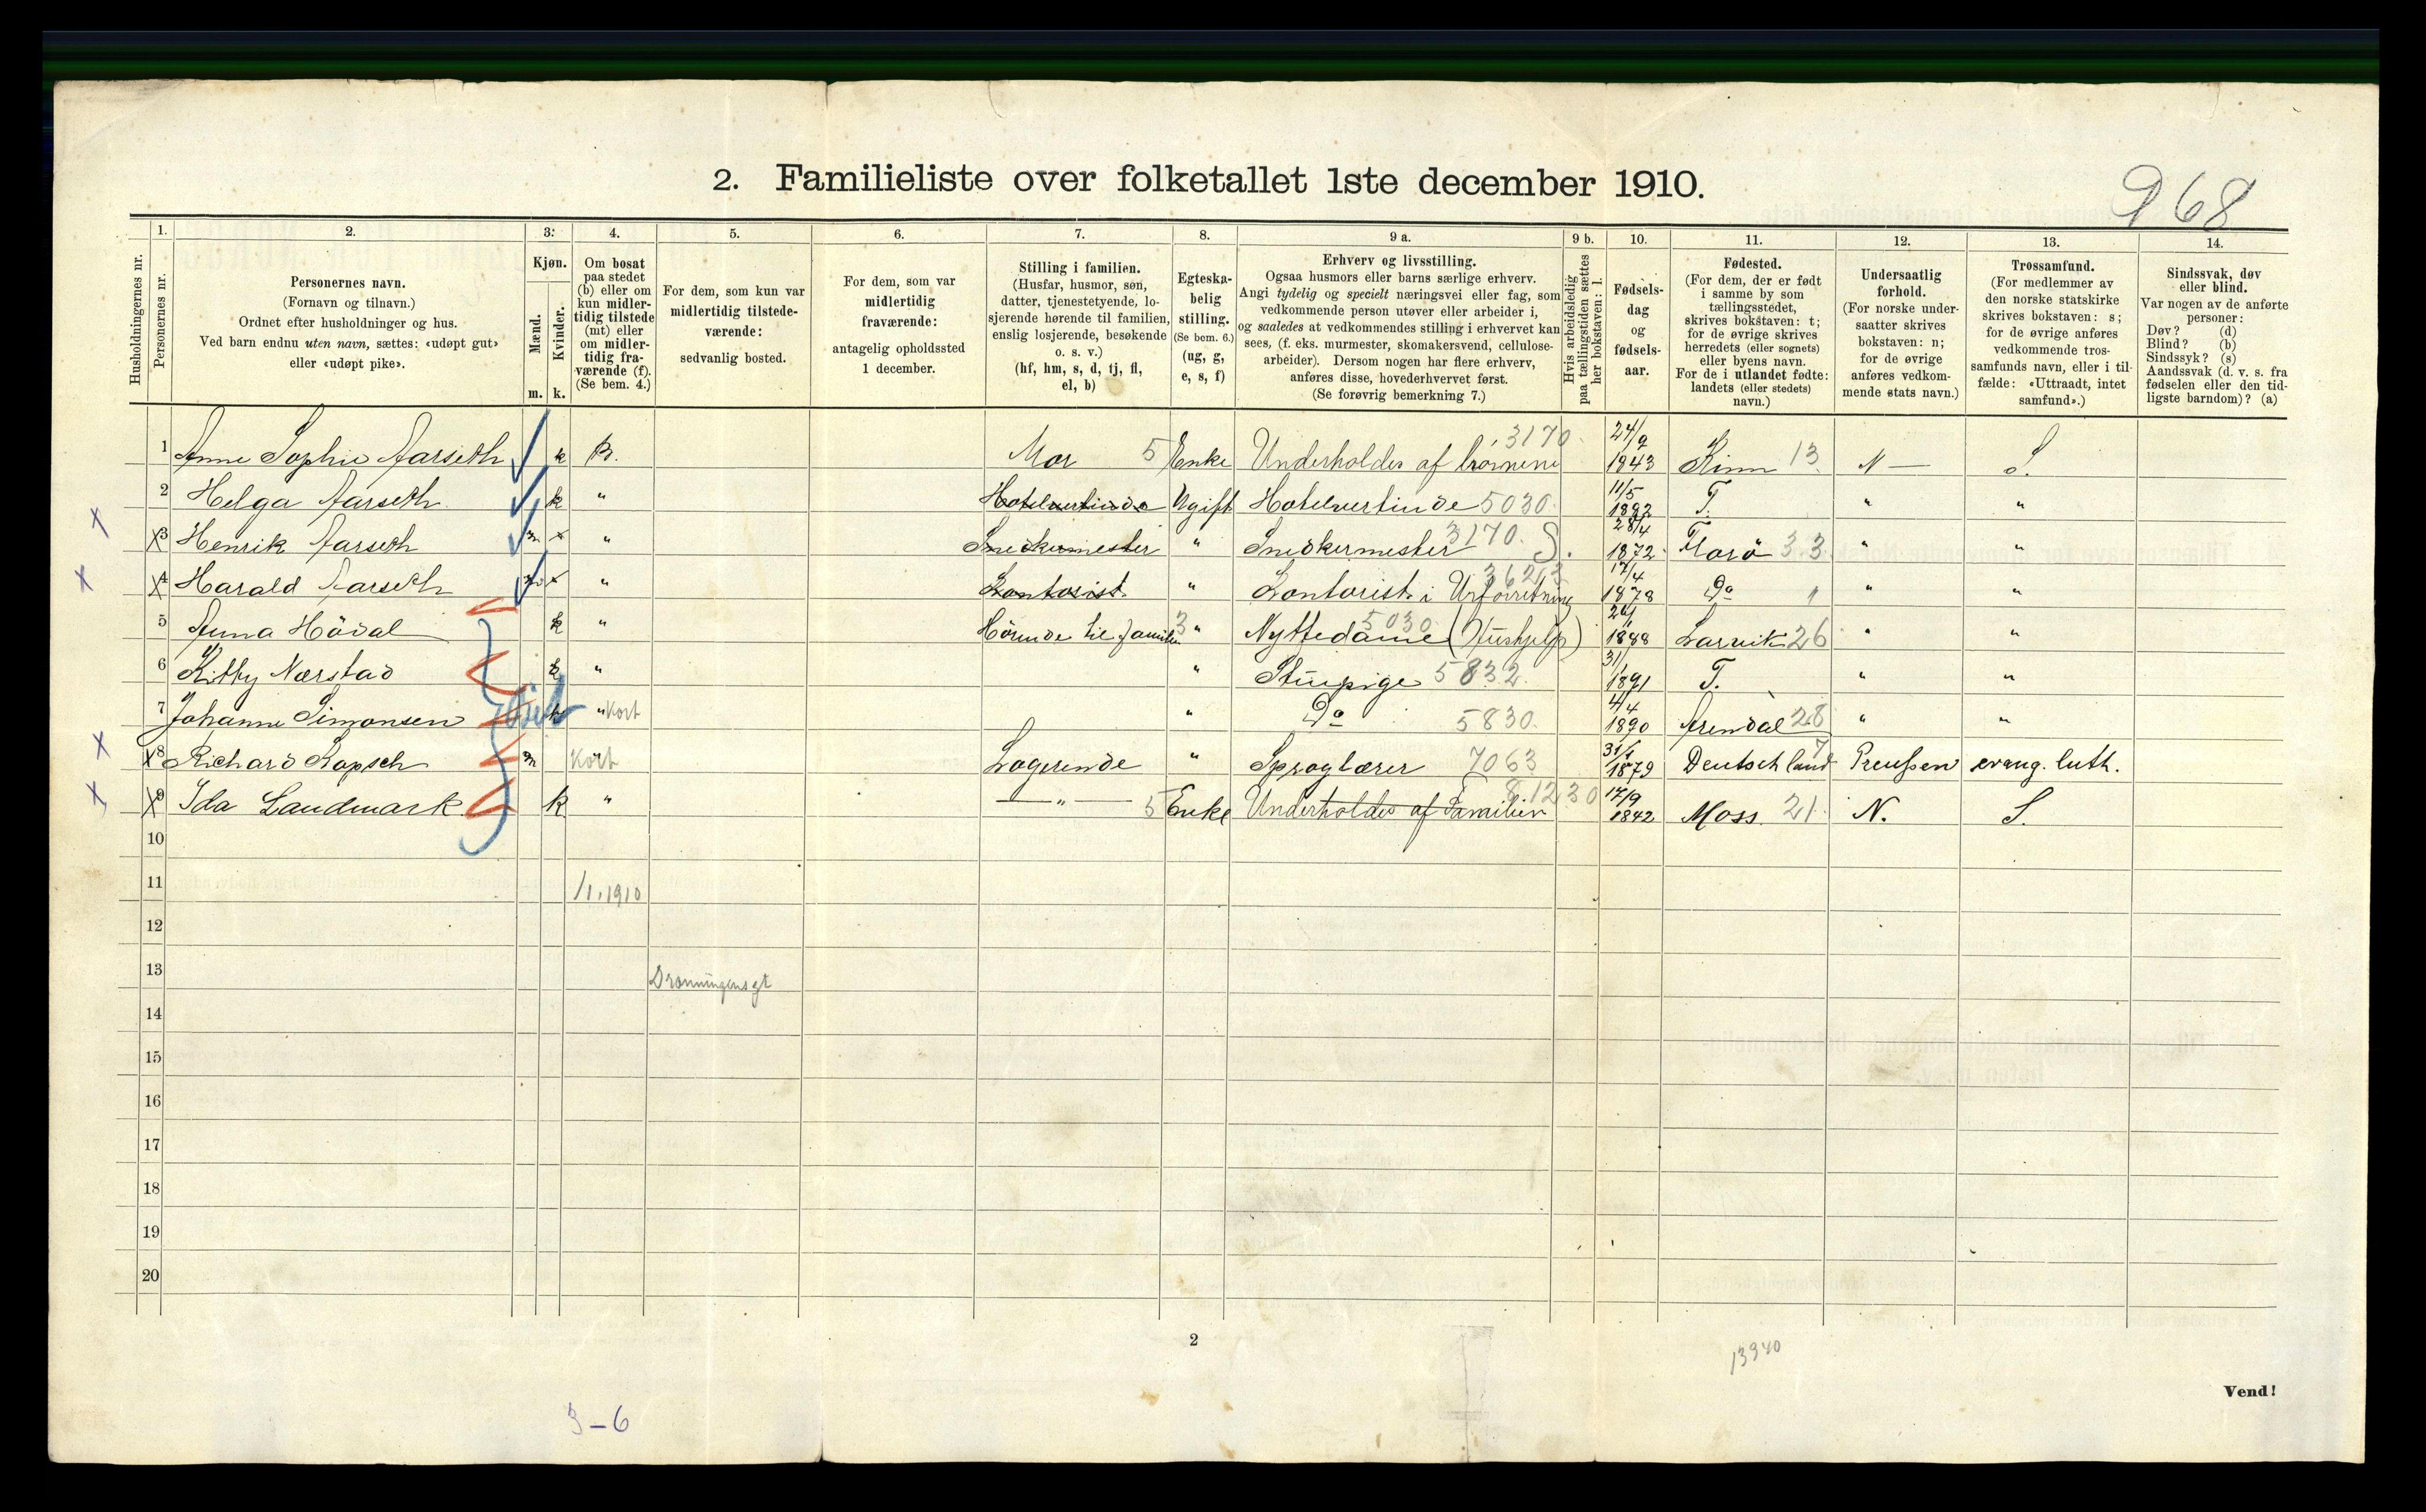 968
2. Familieliste over folketallet 1ste december 1910.
1. 2. 3. 4. 5. 6. 7. 8. 9 a. 9 b. 10. 11. 12. 13. 14.
Husholdningernes nr.
Personernes nr.
Personernes navn.
(Fornavn og tilnavn.)
Ordnet efter husholdninger og hus.
Ved barn endnu uten navn, sættes: «udøpt gut»
eller «udøpt pike».
Kjøn.
Mænd.
Kvinder.
m. k.
Om bosat
paa stedet
(b) eller om
kun midler-
tidig tilstede
(mt) eller
om midler-
tidig fra-
værende (f).
(Se bem. 4.)
For dem, som kun var
midlertidig tilstede-
værende:
sedvanlig bosted.
For dem, som var
midlertidig
fraværende:
antagelig opholdssted
1 december.
Stilling i familien.
(Husfar, husmor, søn,
datter, tjenestetyende, lo-
sjerende hørende til familien,
enslig losjerende, besøkende
o. s. v.)
(hf, hm, s, d, tj, fl,
el, b)
Egteska-
belig
stilling.
(Se bem. 6.)
(ug, g,
e, s, f)
Erhverv og livsstilling.
Ogsaa husmors eller barns særlige erhverv.
Angi tydelig og specielt næringsvei eller fag, som
vedkommende person utøver eller arbeider i,
og saaledes at vedkommendes stilling i erhvervet kan
sees, (f. eks. murmester, skomakersvend, cellulose-
arbeider). Dersom nogen har flere erhverv,
anføres disse, hovederhvervet først.
(Se forøvrig bemerkning 7.)
Hvis arbeidsledig
paa tællingstiden sættes
her bokstaven: l.
Fødsels-
dag
og
fødsels-
aar.
Fødested.
(For dem, der er født
i samme by som
tællingsstedet,
skrives bokstaven: t;
for de øvrige skrives
herredets (eller sognets)
eller byens navn.
For de i utlandet fødte:
landets (eller stedets)
navn.)
Undersaatlig
forhold.
(For norske under-
saatter skrives
bokstaven: n;
for de øvrige
anføres vedkom-
mende stats navn.)
Trossamfund.
(For medlemmer av
den norske statskirke
skrives bokstaven: s;
for de øvrige anføres
vedkommende tros-
samfunds navn, eller i til-
fælde: «Uttraadt, intet
samfund».)
Sindssvak, døv
eller blind.
Var nogen av de anførte
personer:
Døv? (d)
Blind? (b)
Sindssyk? (s)
Aandssvak (d. v. s. fra
fødselen eller den tid-
ligste barndom)? (a)
1 Anne Sophie Aarseth k B. Mor 5 Enke Underholdes af börnene 3170 24/9 1843 Kinn 13 N S.
2 Helga Aarseth k " Hotelvertinde Ugift Hotelvertinde 5030 11/5 1882 T. " "
x x3 Henrik Aarseth m " Snedkermester " Snedkermester 3170. S. 28/4 1872 Florö 33 " "
x x4 Harald Aarseth m " Kontorist " Kontorist i Urforretning 17/4 1878 Do " "
5 Anna Hödal k " Hörende til familien 3 " Nyttedame (Hushjelp) 5030 1888 Larvik 26 " "
6 Kitty Nærstad k " " Stuepige 5832 31/1 1891 T. " "
7 Johanne Simonsen k " Kort " Do 5830 4/4 1890 Arendal 28 " "
x x8 Richard Kopsch m Kort Logerende " Sproglærer 7063 31/1 1879 Deutschland 7 Preußen evang. luth.
x x9 Ida Landmark k " — " — 5 Enke Underholdes af Familien 81230 17/9 1842 Moss 21 N. S.
10
11 1/1.1910
12
13 Dronningensgt
14
15
16
17
18
19
20
2
13940
Vend!
3-6